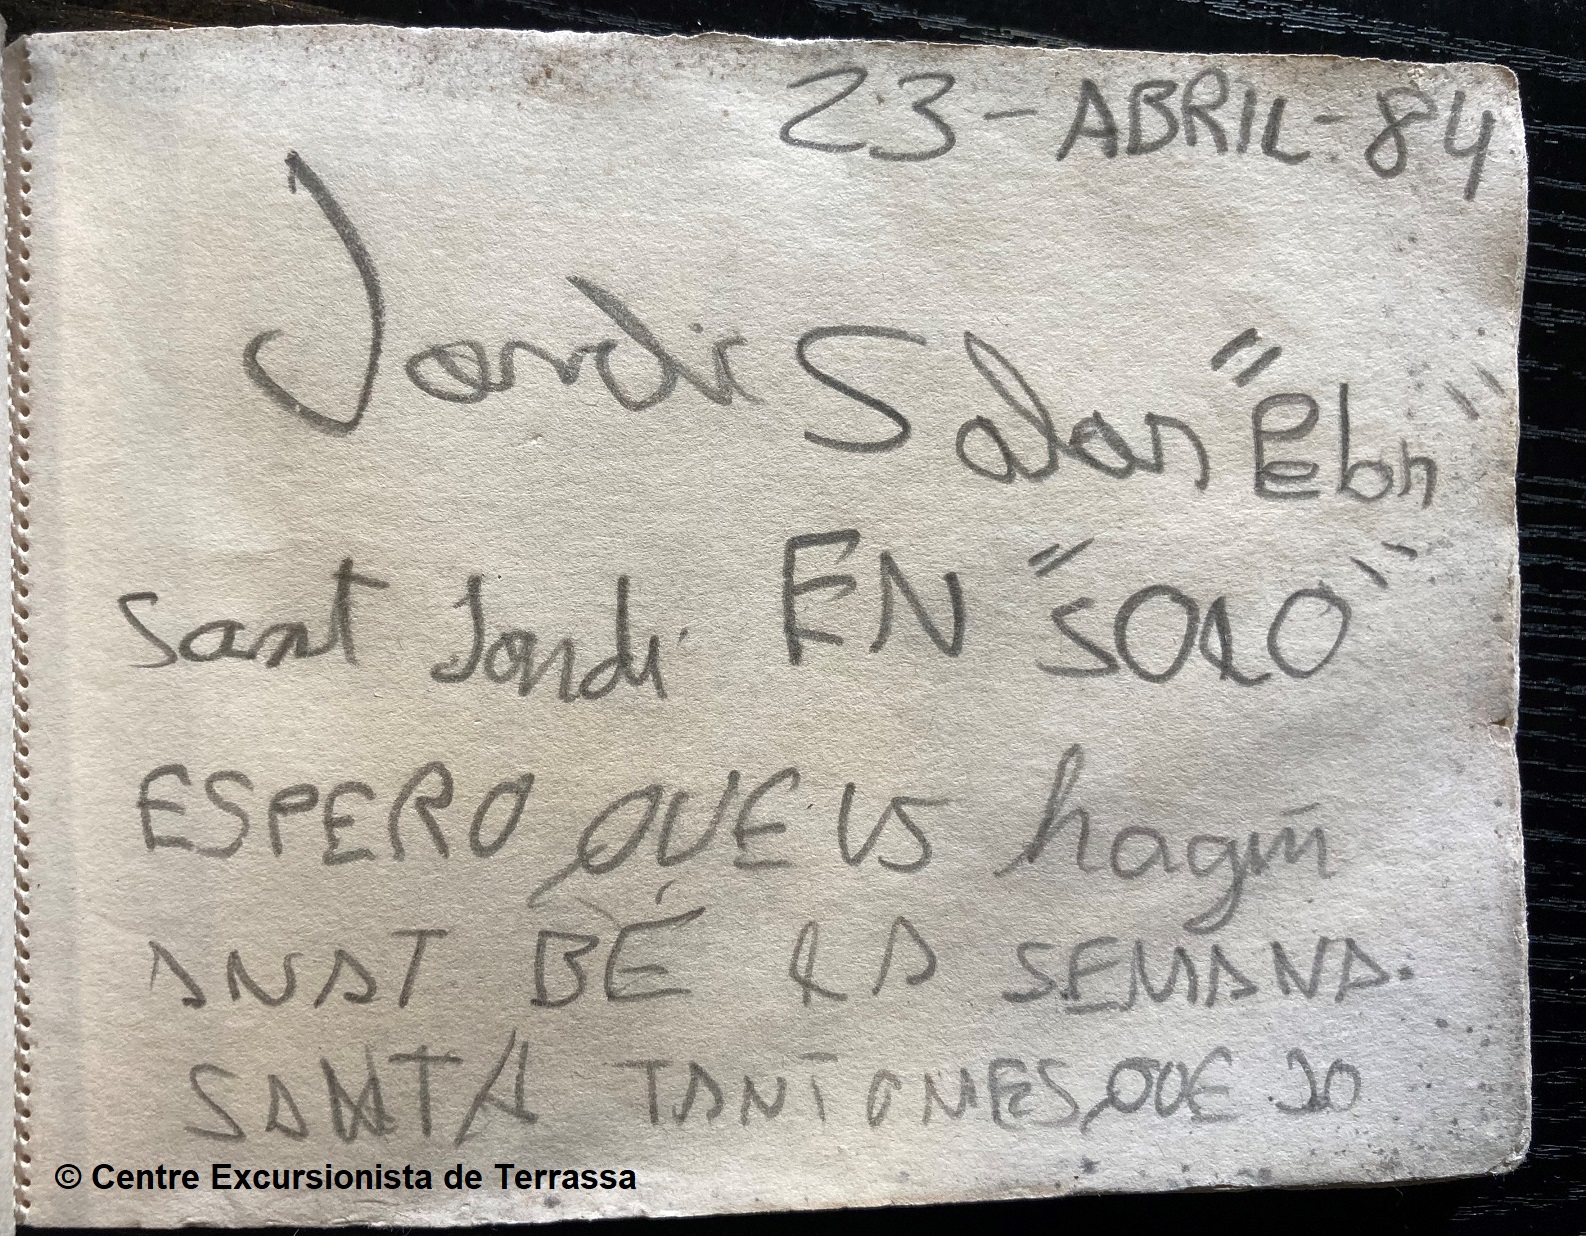 23-ABRIL-84
Jordi Salas "Ebri"
Sant Jordi EN "SOLO"
ESPERO QUE US hagin
ANAT BÉ LA SEMANA
SANTA TANT O MES, QUE JO
© Centre Excursionista de Terrassa